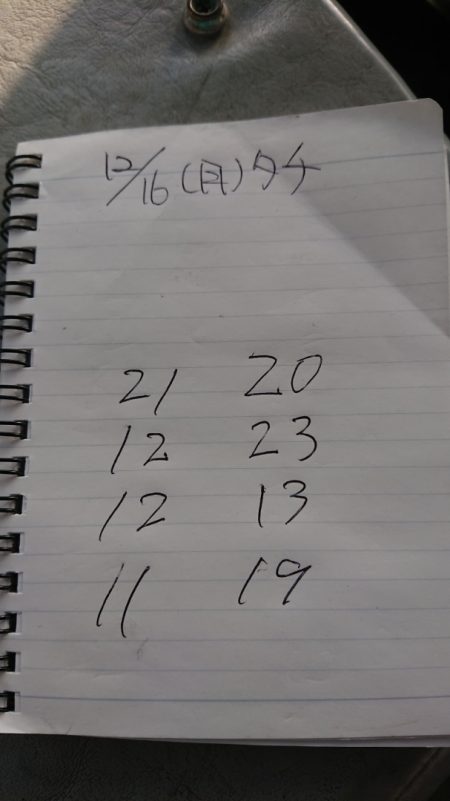 12/16(月)タチ
21 20
12 23
12 13
11 19